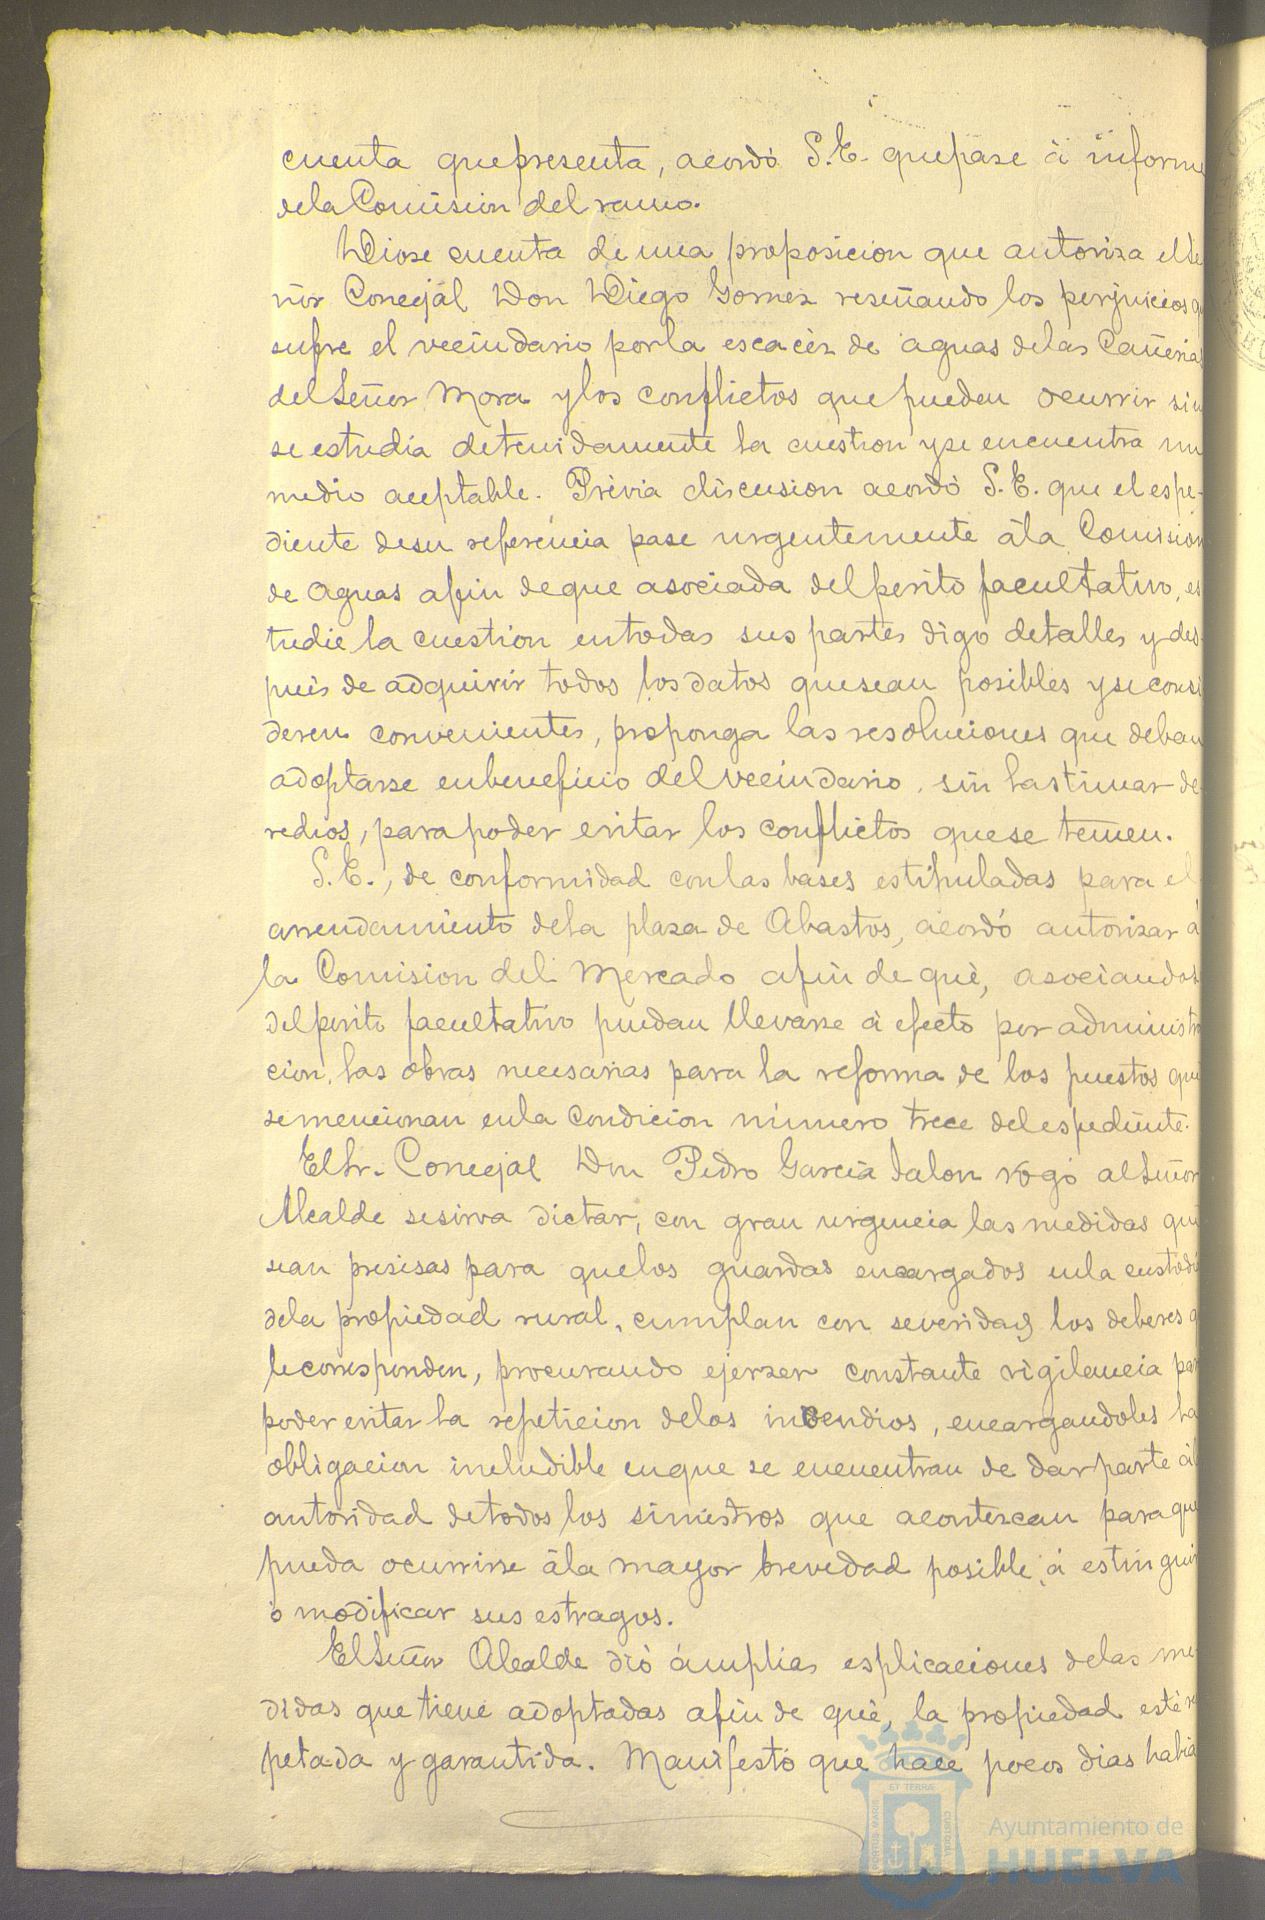 cuenta que presenta, acordó S.E. que pase á informe
de la Comision del ramo.
Diose cuenta de una proposicion que autoriza el Se
ñor Concejál Don Diego Gomez reseñando los perjuicios q
sufre el vecindario por la escacéz de aguas de las Cañerias
del Señor Mora y los conflictos que pueden ocurrir sin
se estudia detenidamente la cuestion y se encuentra un
medio aceptable. Prévia discusion acordó S.E. que el espe-
diente de su referencia pase urgentemente á la Comision
de Aguas afin de que asociada del perito facultativo, es
tudie la cuestion en todas sus partes digo detalles y des-
pués de adquirir todos los datos que sean posibles y se consi
deren convenientes, proponga las resoluciones que deban
adoptarse en beneficio del vecindario, sin lastimar de-
rechos, para poder evitar los conflictos que se temen.
S.E., de conformidad con las bases estipuladas para el
arrendamiento de la plaza de Abastos, acordó autorizar á
la Comision del Mercado afin de qué, asociandos
del perito facultativo puedan llevarse á efecto por administra
cion, las obras necesarias para la reforma de los puestos que
se mencionan en la condicion número trece del espediente.
El Sr. Concejal Don Pedro Garcia Jalon rogó al Señor
Alcalde se sirva dictar, con gran urgencia las medidas que
sean presisas para que los guardas encargados en la custodia
de la propiedad rural, cumplan con severidad los deberes q
le corresponden, procurando ejerser constante vigilancia par
poder evitar la repeticion de los incendios, encargandoles la
obligacion ineludible en que se encuentran de dar parte á l
autoridad de todos los sinistros que acontezcan para que
pueda ocurrirse á la mayor brevedad posible, á estinguir
ó modificar sus estragos.
El Señor Alcalde dió ámplias esplicaciones de las me
didas que tiene adoptadas afin de qué, la propiedad esté re
petada y garantida. Manifestó que hace pocos dias habia
ET TERRÆ
PORTUS MARIS
CUSTODIA
Ayuntamiento de
HUELVA